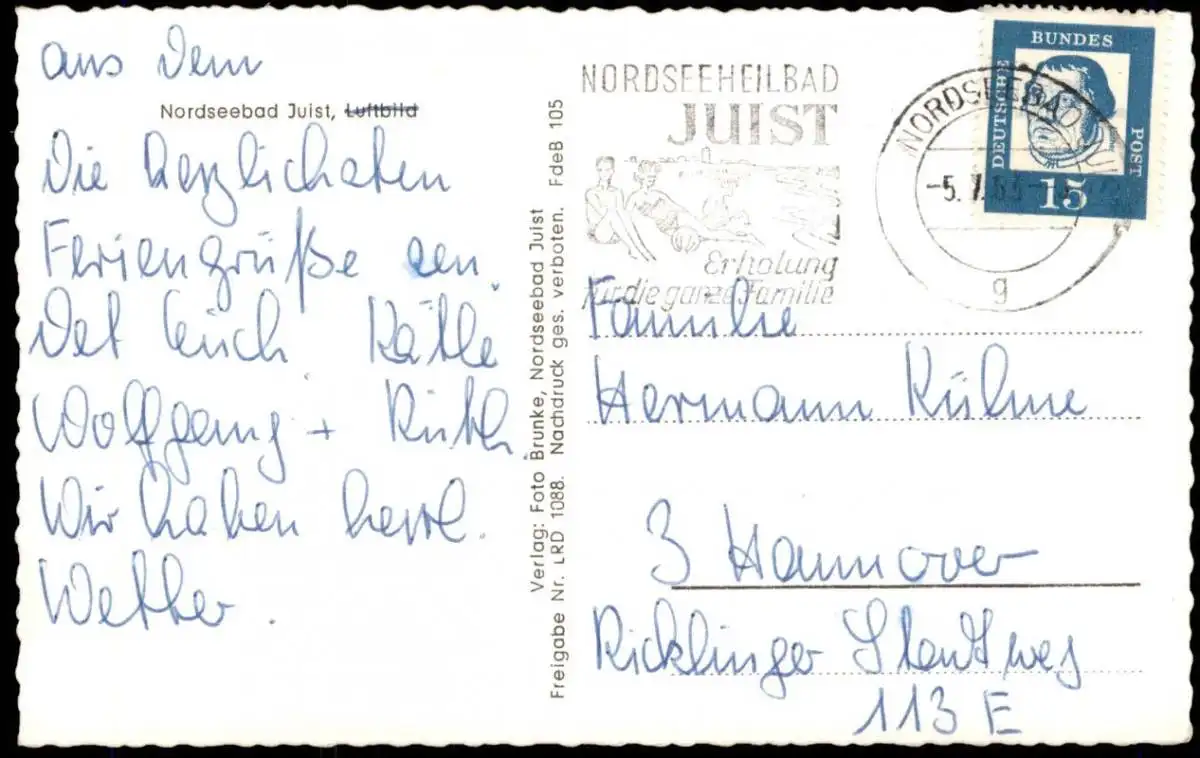 aus dem
Nordseebad Juist, Luftbild
Die herzlichsten
Feriengrüße sen
det Euch Käthe
Wolfgang + Ruth.
Wir haben herrl.
Wetter.
Verlag: Foto Brunke, Nordseebad Juist
Freigabe Nr. LRD 1088. Nachdruck ges. verboten. FdeB 105
NORDSEEHEILBAD
JUIST
Erholung
für die ganze Familie
NORDSEEBAD
-5. 63-
g
DEUTSCHE
BUNDES
POST
15
Familie
Hermann Kühne
3 Hannover
Ricklinger Stadtweg
113 E